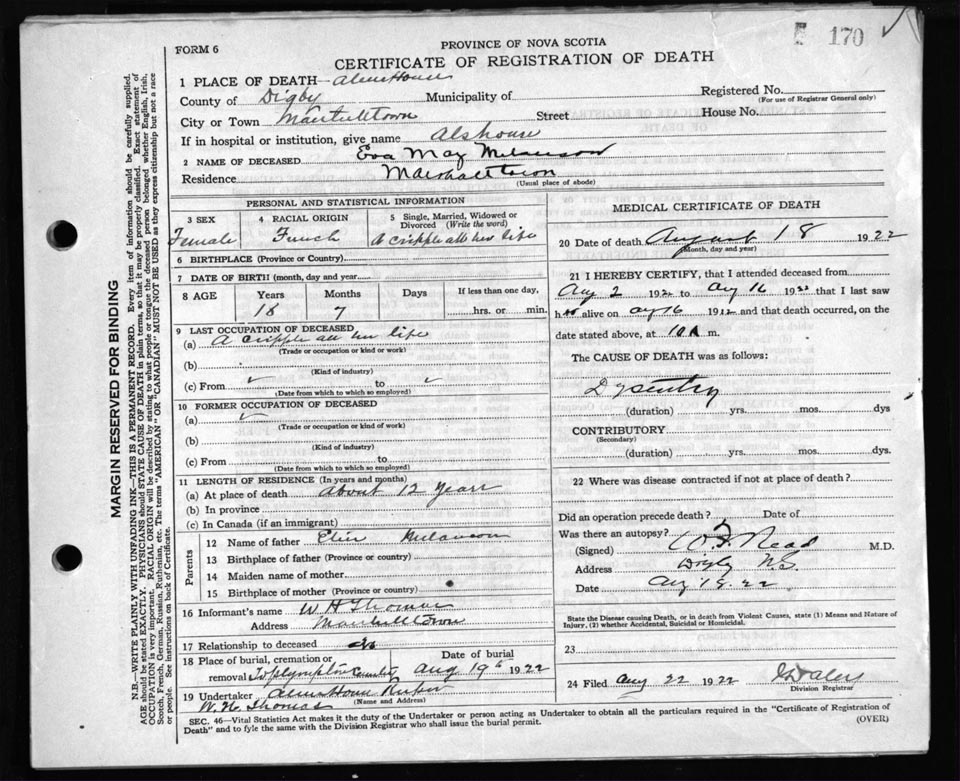 170
FORM 6
PROVINCE OF NOVA SCOTIA
CERTIFICATE OF REGISTRATION OF DEATH
1 PLACE OF DEATH— Almshouse
County of Digby Municipality of Registered No.
(For use of Registrar General only)
City or Town Street House No.
If in hospital or institution, give name Alshouse
2 NAME OF DECEASED Eva May Melanson
Residence Marshalltown
(Usual place of abode)
PERSONAL AND STATISTICAL INFORMATION
3 SEX
Female
4 RACIAL ORIGIN
French
5 Single, Married, Widowed or
Divorced (Write the word)
A cripple all her life
6 BIRTHPLACE (Province or Country)
7 DATE OF BIRTH (month, day and year
8 AGE Years Months Days If less than one day,
18 7 hrs. or min.
9 LAST OCCUPATION OF DECEASED
(a) A cripple all her life
(Trade or occupation or kind or work)
(b)
(Kind of industry)
(c) From ✓ to ✓
(Date from which to which so employed)
10 FORMER OCCUPATION OF DECEASED
(a) ✓
(Trade or occupation or kind of work)
(b)
(Kind of industry)
(c) From to
(Date from which to which so employed)
11 LENGTH OF RESIDENCE (In years and months)
(a) At place of death About 12 Years
(b) In province
(c) In Canada (if an immigrant)
Parents
12 Name of father Melanson
13 Birthplace of father (Province or country)
14 Maiden name of mother
15 Birthplace of mother (Province or country)
16 Informant's name W H Thomas
Address
17 Relationship to deceased
18 Place of burial, cremation or Date of burial
removal Aug 19 1922
19 Undertaker Almshouse Keeper
(Name and Address)
W. H. Thomas
MEDICAL CERTIFICATE OF DEATH
20 Date of death August 18 1922
(Month, day and year)
21 I HEREBY CERTIFY, that I attended deceased from
Aug 2 1922 to Aug 16 1922 that I last saw
h alive on Aug 16 1922 and that death occurred, on the
date stated above, at 10 A m.
The CAUSE OF DEATH was as follows:
Dysentry
(duration) yrs. mos. dys
CONTRIBUTORY
(Secondary)
(duration) yrs. mos. dys.
22 Where was disease contracted if not at place of death?
Did an operation precede death? Date of
Was there an autopsy?
(Signed) Read M.D.
Address Digby N.S.
Date Aug 18. 22
State the Disease causing Death, or in death from Violent Causes, state (1) Means and Nature of
Injury, (2) whether Accidental, Suicidal or Homicidal.
23
24 Filed Aug 22 1922
Division Registrar
SEC. 46—Vital Statistics Act makes it the duty of the Undertaker or person acting as Undertaker to obtain all the particulars required in the "Certificate of Registration of
Death" and to fyle the same with the Division Registrar who shall issue the burial permit.
(OVER)
MARGIN RESERVED FOR BINDING
N.B.—WRITE PLAINLY WITH UNFADING INK—THIS IS A PERMANENT RECORD. Every item of information should be carefully supplied.
AGE should be stated EXACTLY. PHYSICIANS should STATE CAUSE OF DEATH in plain terms, so that it may be properly classified. Exact statement of
OCCUPATION is very important. RACIAL ORIGIN will be described by stating to what people or tongue the deceased person belonged whether English, Irish,
Scotch, French, German, Russian, Ruthenian, etc. The terms "AMERICAN" OR "CANADIAN" MUST NOT BE USED as they express citizenship but not a race
or people. See instructions on back of Certificate.